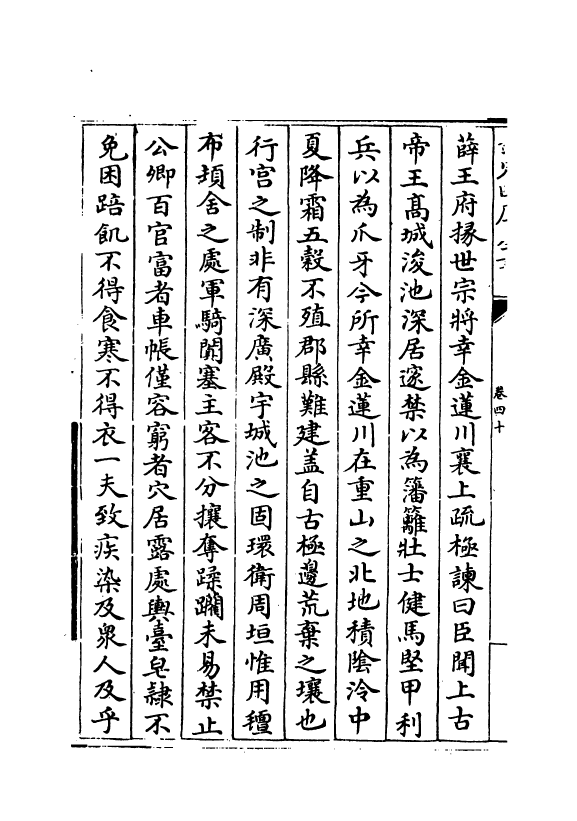 卷四十
薛王府掾世宗將幸金蓮川襄上疏極諫曰臣聞上古
帝王髙城浚池深居邃禁以為籓籬壯士健馬堅甲利
兵以為爪牙今所幸金蓮川在重山之北地積陰冷中
夏降霜五穀不殖郡縣難建盖自古極邊荒棄之壤也
行宫之制非有深廣殿宇城池之固環衛周垣惟用氊
布頓舍之處軍騎闐塞主客不分攘奪蹂躙未易禁止
公卿百官富者車帳僅容窮者穴居露處輿臺皂隷不
免困踣飢不得食寒不得衣一夫致疾染及衆人及乎